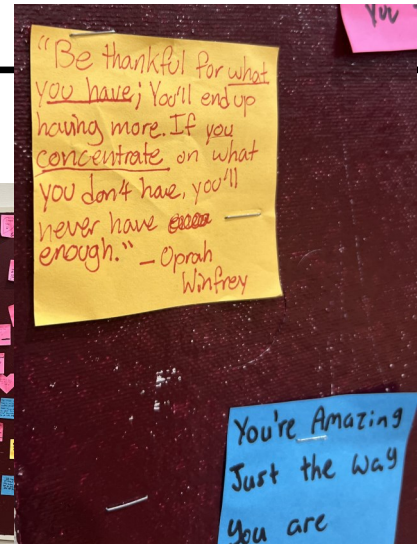 "Be thankful for what
you have; You'll end up
having more. If you
concentrate on what
you don't have, you'll
never have
enough." – Oprah
Winfrey
You're Amazing
Just the way
you are